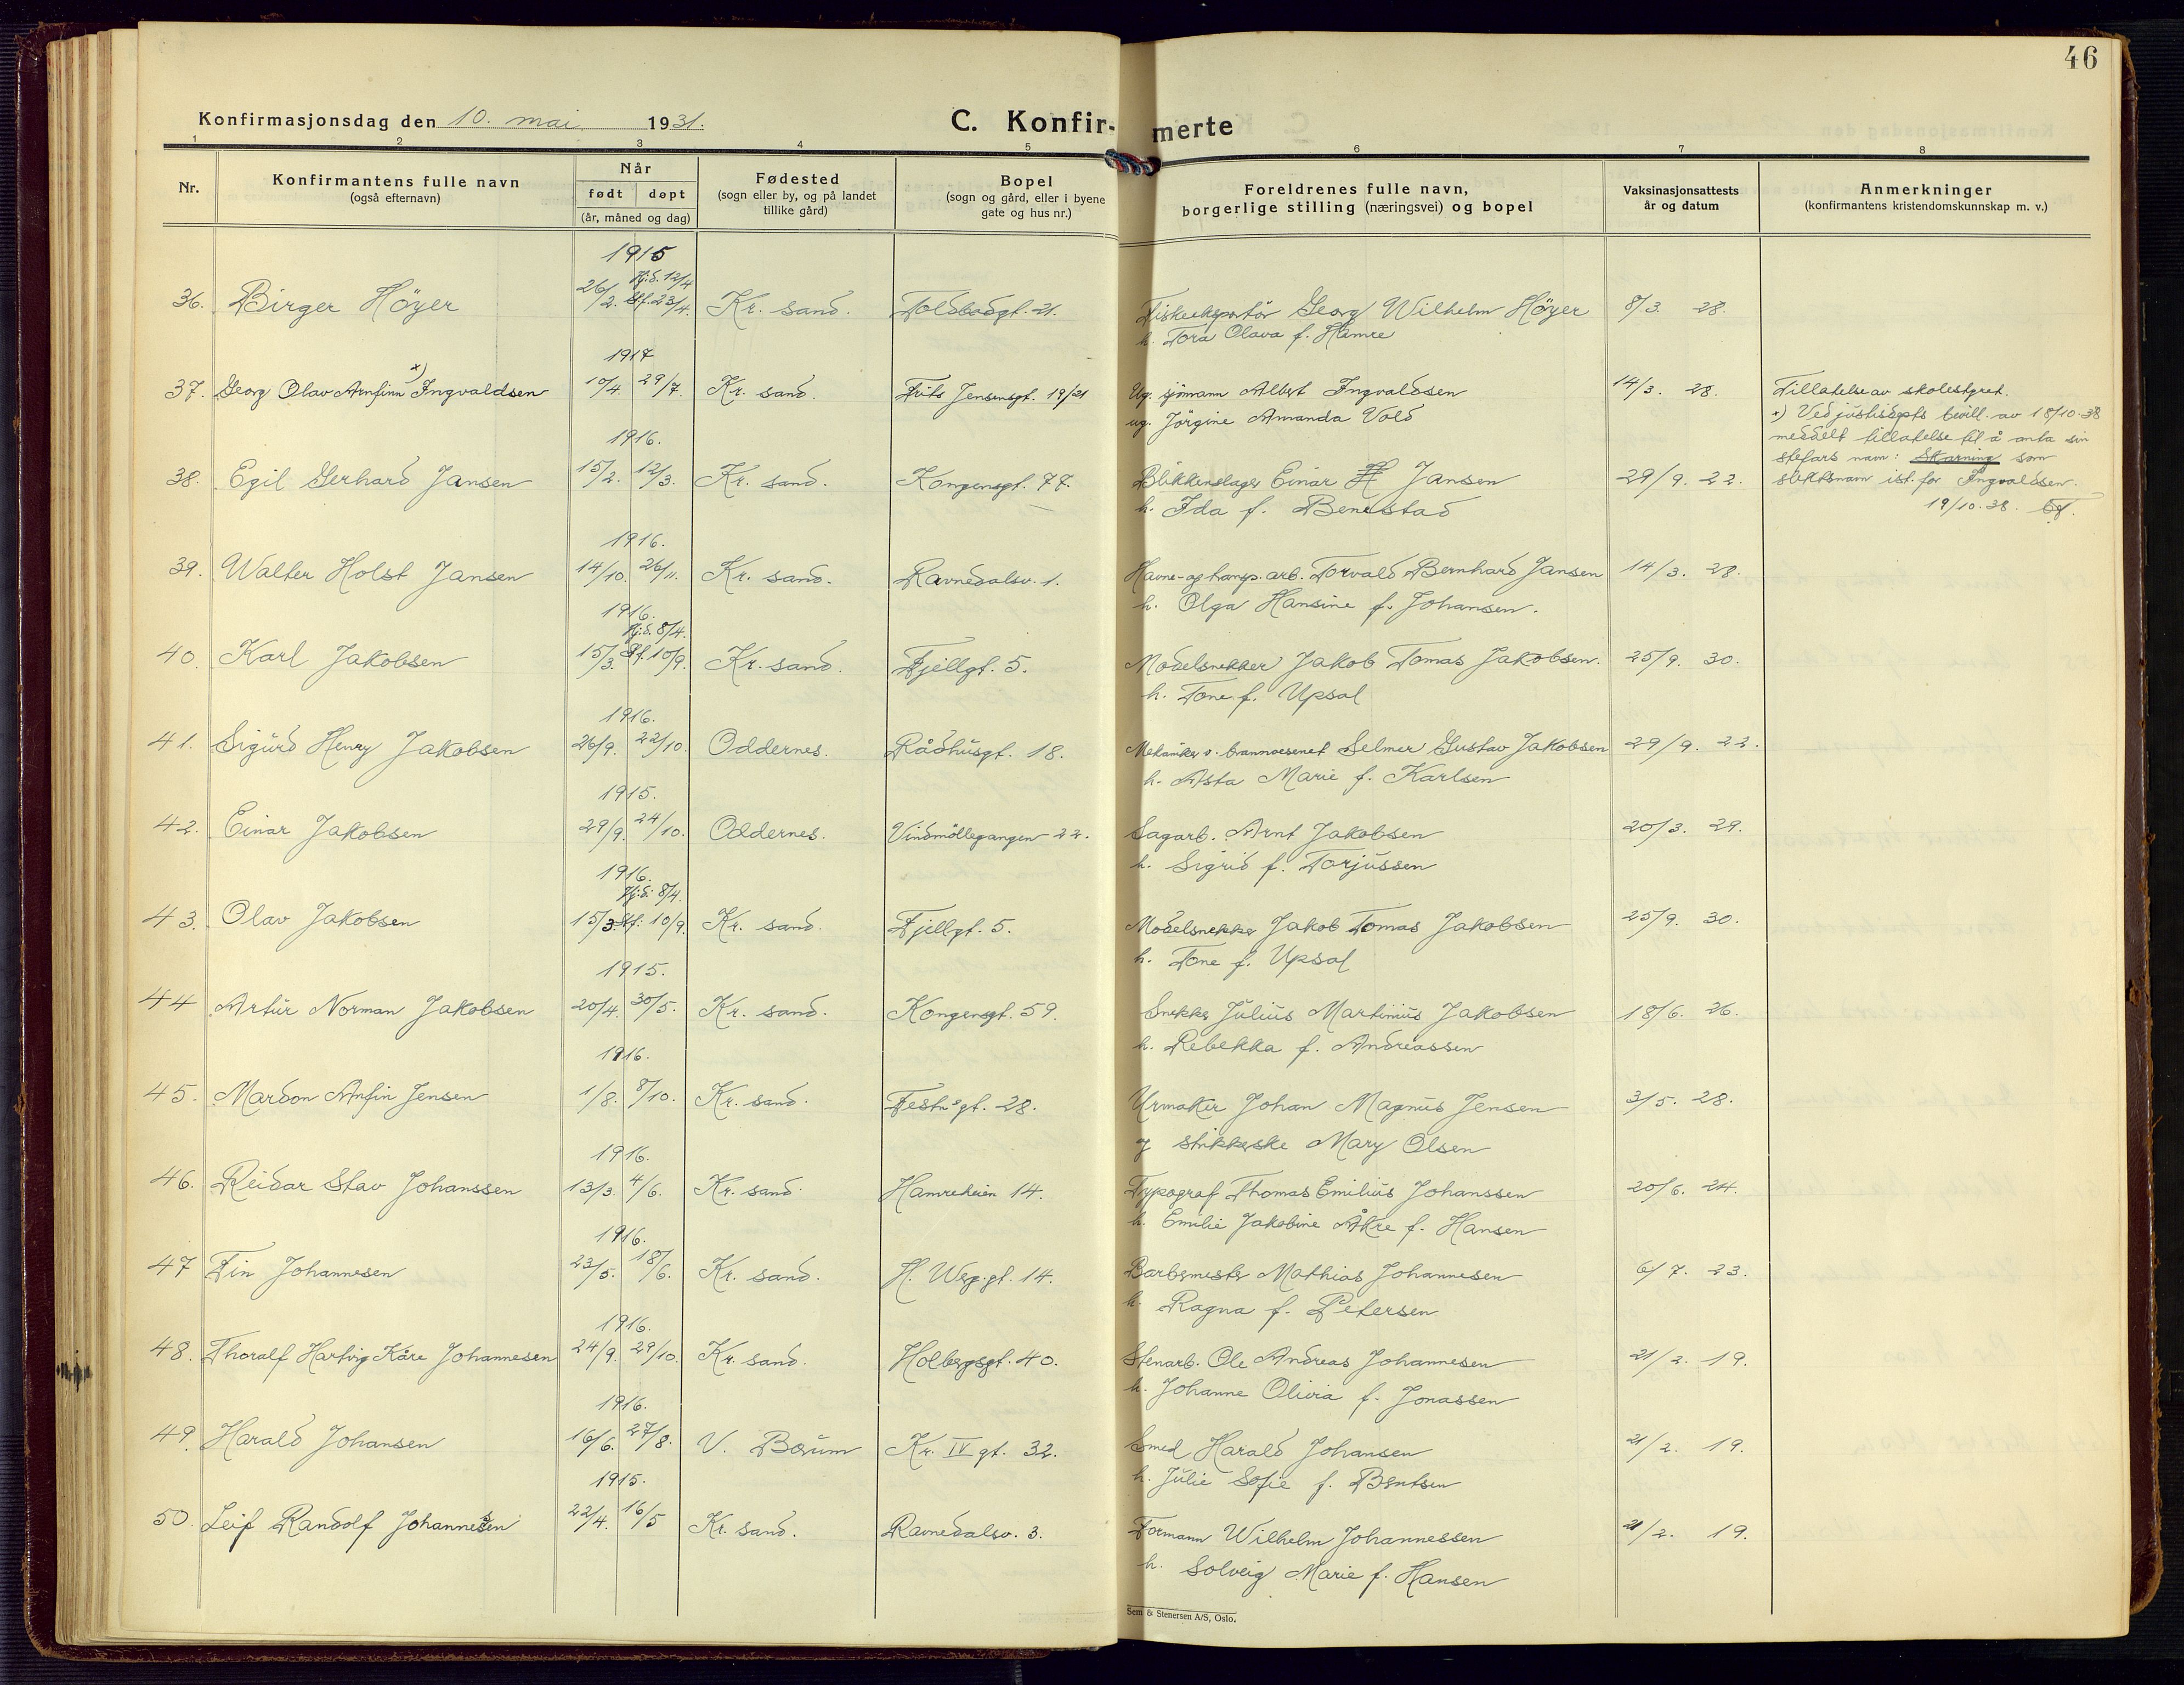 46
Konfirmasjonsdag den 10. mai 1931.
C. Konfir- merte
1 2 3 4 5 6 7 8
Nr.
Konfirmantens fulle navn
(også efternavn)
Når
født døpt
(år, måned og dag)
Fødested
(sogn eller by, og på landet
tillike gård)
Bopel
(sogn og gård, eller i byene
gate og hus nr.)
Foreldrenes fulle navn,
borgerlige stilling (næringsvei) og bopel
Vaksinasjonsattests
år og datum
Anmerkninger
(konfirmantens kristendomskunnskap m. v.)
1915
36. Birger Höyer 26/2. Hj.d. 12/4 Stf. 23/4. Kr. sand. Toldbodgt. 21. Fiskeeksportör Georg Wilhelm Höyer 8/3. 28.
h. Tora Olava f. Hamre
1917
37. Georg Olav Arnfinn x) Ingvaldsen 10/4. 29/7. Kr. sand. Frits Jensensgt. 19/21 Ug. sjömann Albert Ingvaldsen 14/3. 28. Tillatelse av skolestyret.
ug. Jörgine Amanda Vold
x) Ved justisdepts bevill. av 18/10-38
meddelt tillatelse til å anta sin
stefars navn: Skarning som
slektsnavn ist. for Ingvaldsen.
19/10.38.
1916.
38. Egil Gerhard Jansen 15/2. 12/3. Kr. sand. Kongensgt. 77. Blikkenslager Einar Jansen 29/9. 22.
h. Ida f. Benestad
1916.
39. Walter Holst Jansen 14/10. 26/11. Kr. sand. Ravnedalsv. 1. Havne- og transp. arb. Torvald Bernhard Jansen 14/3. 28.
h. Olga Hansine f. Johansen.
1916.
40. Karl Jakobsen 15/3. Hj.d. 8/4. Stf. 10/9. Kr. sand. Fjellgt. 5. Modelsnekker Jakob Tomas Jakobsen. 25/9. 30.
h. Tone f. Upsal
1916.
41. Sigurd Henry Jakobsen 26/9. 22/10. Oddernes. Rådhusgt. 18. Mekaniker v. brannvesenet Selmer Gustav Jakobsen 29/9. 22.
h. Asta Marie f. Karlsen
1915.
42. Einar Jakobsen 29/9. 24/10. Oddernes. Vindmöllegangen 22. Sagarb. Arnt Jakobsen 20/3. 29.
h. Sigrid f. Torjussen
1916.
43. Olav Jakobsen 15/3. Hj.d. 8/4. Stf. 10/9. Kr. sand. Fjellgt. 5. Modelsnekker Jakob Tomas Jakobsen 25/9. 30.
h. Tone f. Upsal
1915.
44 Artur Norman Jakobsen 20/4. 30/5. Kr. sand. Kongensgt. 59. Snekker Julius Martinius Jakobsen 18/6. 26.
h. Rebekka f. Andreassen
1916.
45. Mardon Anfin Jensen 1/8. 8/10. Kr. sand. Festn.sgt. 28. Urmaker Johan Magnus Jensen 3/5. 28.
og strikkerske Mary Olsen
1916.
46. Reidar Stav Johanssen 13/3. 4/6. Kr. sand. Hamreheien 14. Typograf Thomas Emilius Johanssen 20/6. 24.
h. Emilie Jakobine Åkre f. Hansen
1916.
47 Fin Johannesen 23/5. 18/6. Kr. sand. H. Werg.gt. 14. Barbermester Mathias Johannesen 6/7. 23.
h. Ragna f. Petersen
1916.
48. Thoralf Hartvig Kåre Johannesen 24/9. 29/10. Kr. sand. Holbergsgt. 40. Stenarb. Ole Andreas Johannesen 21/2. 19.
h. Johanne Olivia f. Jonassen
1916.
49. Harald Johansen 16/6. 27/8. V. Bærum Kr. IV gt. 32. Smed Harald Johansen 21/2. 19.
h. Julie Sofie f. Berntsen
1915.
50. Leif Randolf Johannessen 22/4. 16/5 Kr. sand. Ravnedalsv. 3. Formann Wilhelm Johannessen 21/2. 19.
h. Solveig Marie f. Hansen
Sem & Stenersen A/S, Oslo.